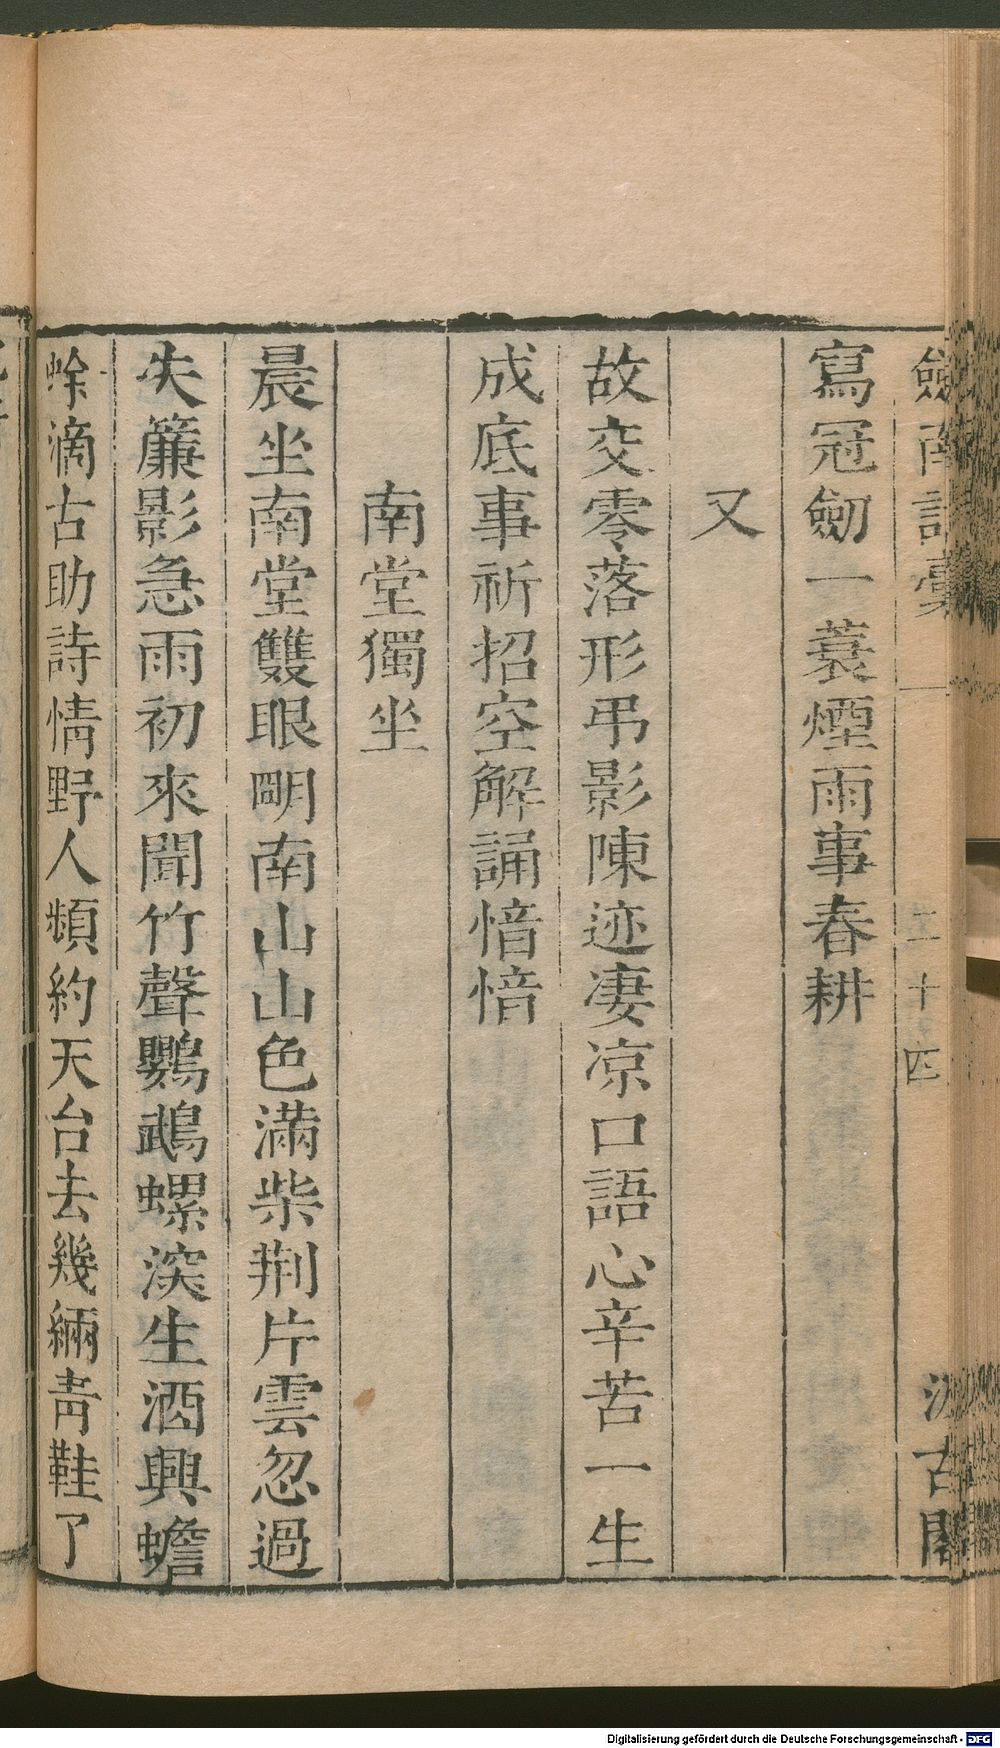 劒南詩稾
二十四
汲古閣
寫冠劒一蓑煙雨事春耕
又
故交零落形弔影陳迹凄凉口語心辛苦一生
成底事祈招空解誦愔愔
南堂獨坐
晨坐南堂雙眼明南山山色滿柴荆片雲忽過
失簾影急雨初來聞竹聲鸚鵡螺深生酒興蟾
蜍滴古助詩情野人頻約天台去幾緉青鞋了
Digitalisierung gefördert durch die Deutsche Forschungsgemeinschaft - DFG